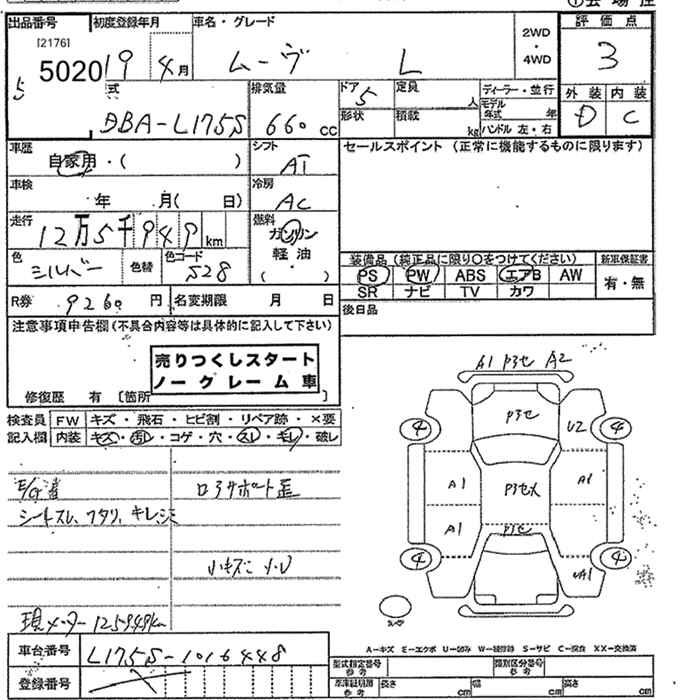 出品番号 初度登録年月 車名・グレード 評価点
[2176]
5020 19 4月 ムーヴ L 2WD ・ 4WD 3
5
外装 内装
D C
式 排気量 ドア 5 定員 人 ディーラー・並行
DBA-L175S 660 cc 形状 積載 kg モデル年式 年
ハンドル 左・右
車歴 自家用・( ) シフト AT セールスポイント (正常に機能するものに限ります)
車検 年 月( 日) 冷房 AC
走行 12万5千949 km 燃料 ガソリン
軽油
( )
色 シルバー 色替 色コード S28
装備品 (純正品に限り〇をつけてください) 新車保証書
PS PW ABS エアB AW 有・無
SR ナビ TV カワ
R券 9260 円 名変期限 月 日 後日品
注意事項申告欄 (不具合内容等は具体的に記入して下さい)
売りつくしスタート
ノークレーム車
修復歴 有 [箇所
A1 P3セ A2
検査員 FW キズ・飛石・ヒビ割・リペア跡・×要
記入欄 内装 キズ・汚れ・コゲ・穴・スレ・キレ・破レ
P3セ
4 U2 4
A1 A1
A1
P3セ
4 4
シートスレ、
現メーター 125949km
車台番号 L175S-1016448
登録番号
A-キズ E-エクボ U-凹み S-サビ XX-交換済
型式指定番号 参考 類別区分番号 参考
参考 長さ cm 幅 cm 高さ cm